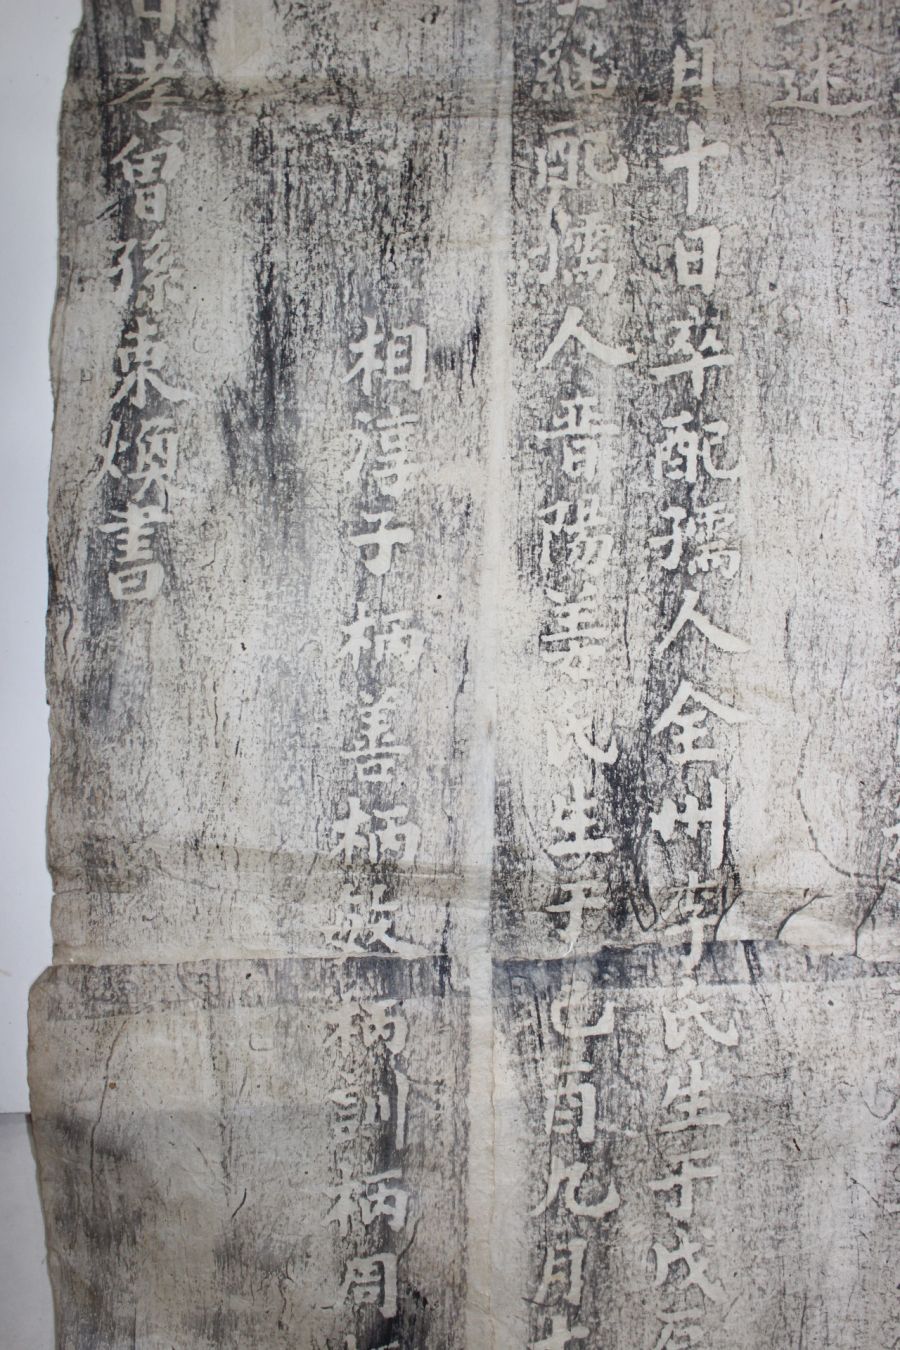 述
月十日卒配孺人全州李氏生于戊
継配孺人晋陽姜氏生于己酉九月十
相淳子柄善柄敎柄爀柄訓柄周
孝曾孫東煥書